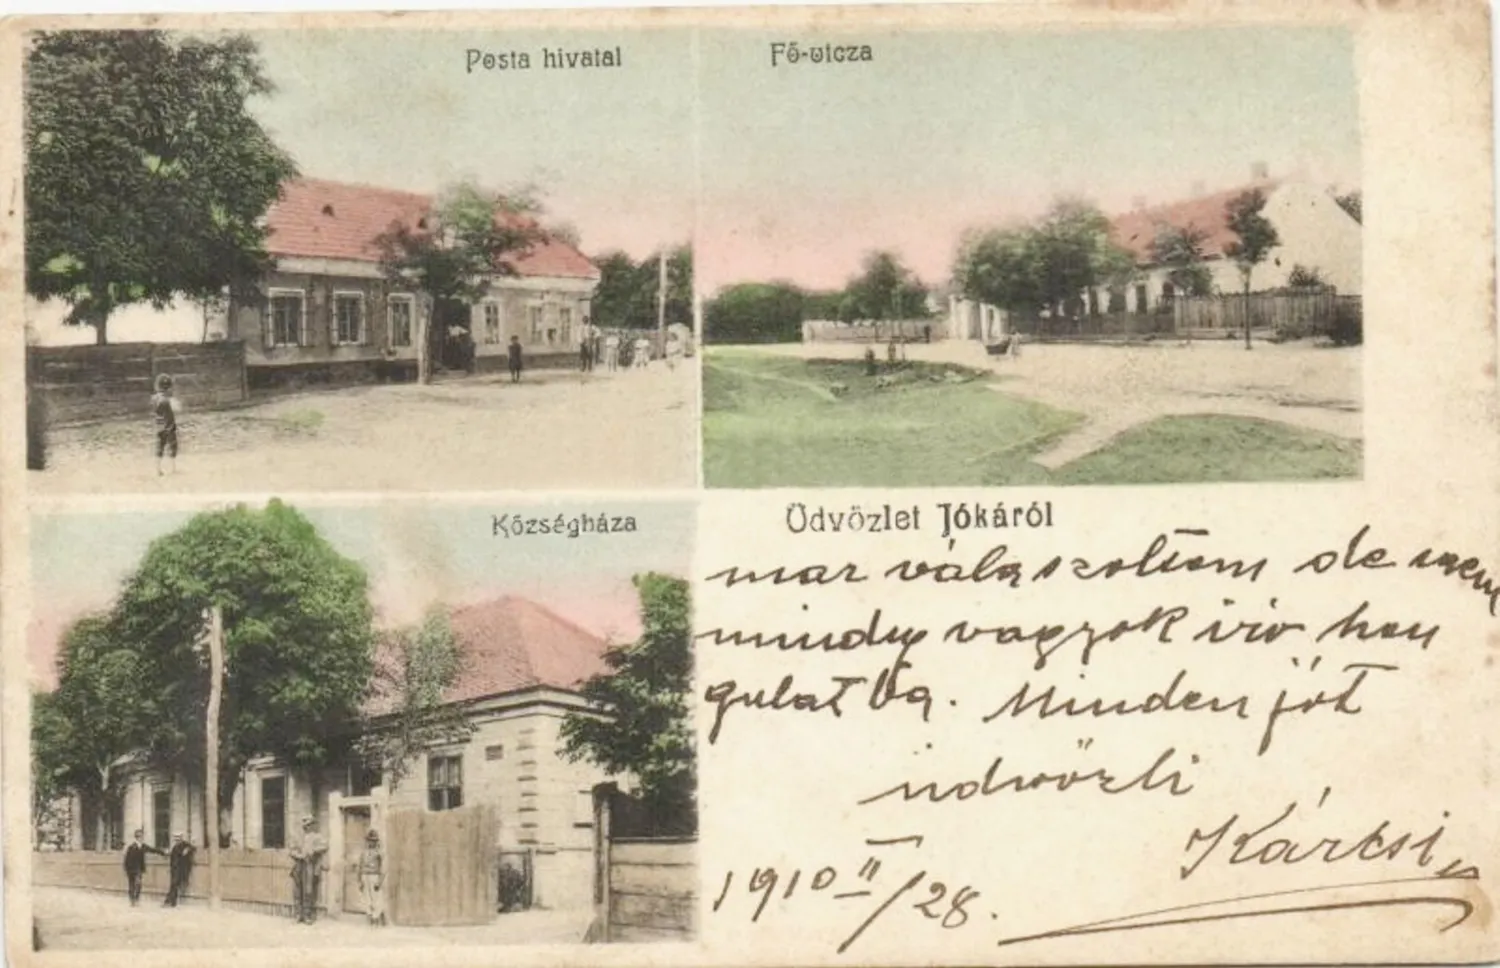 Posta hivatal
Fő-utcza
Községháza
Üdvözlet Jókáról
mar válaszoltam de nem
mindig vagyok iro han
gulatba. Minden jót
üdvözli
Kárcsi
1910 II/28.